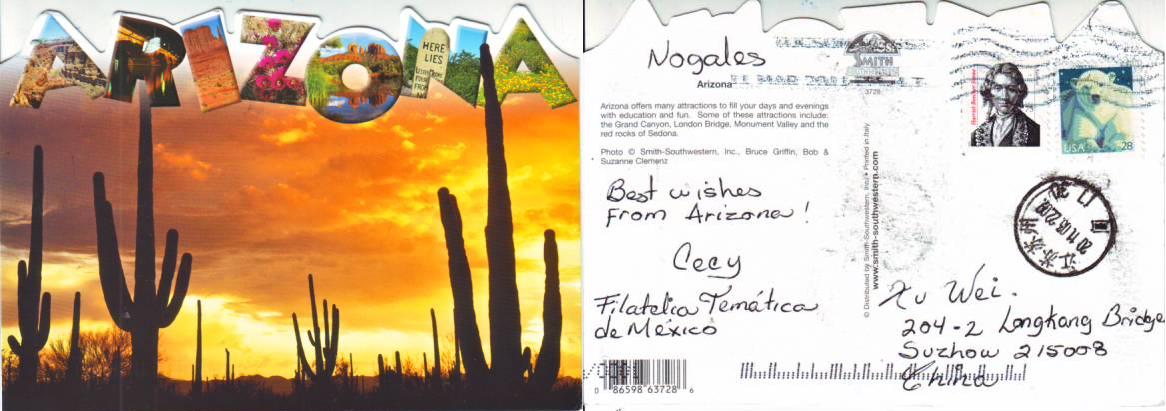 ARIZONA
HERE
LIES
Nogales
Arizona
SMITH
3728
Arizona offers many attractions to fill your days and evenings
with education and fun. Some of these attractions include:
the Grand Canyon, London Bridge, Monument Valley and the
red rocks of Sedona.
Photo © Smith-Southwestern, Inc., Bruce Griffin, Bob &
Suzanne Clemenz
Best wishes
From Arizona!
Cecy
Filatelia Temática
de México
0 86598 63728 6
© Distributed by Smith-Southwestern, Inc. • Printed in Italy
www.smith-southwestern.com
USA 28
江苏苏州
Xu Wei.
204-2 Longkang Bridge
Suzhow 215008
China